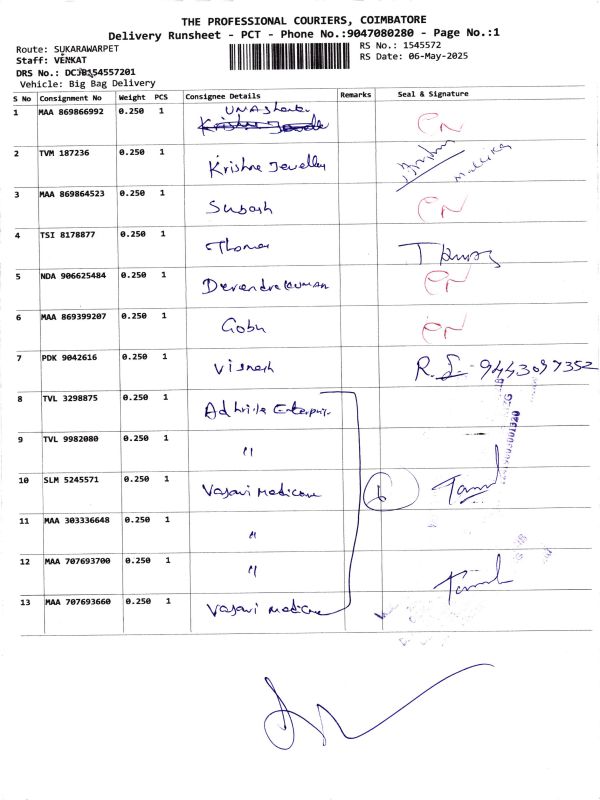 THE PROFESSIONAL COURIERS, COIMBATORE
Delivery Runsheet - PCT - Phone No.:9047080280 - Page No.:1
Route: SUKARAWARPET
RS No.: 1545572
Staff: VENKAT
RS Date: 06-May-2025
DRS No.: 154557201
Vehicle: Big Bag Delivery
S No Consignment No Weight PCS Consignee Details Remarks Seal & Signature
1 MAA 869866992 0.250 1
2 TVM 187236 0.250 1 Krishna Jewellery
3 MAA 869864523 0.250 1 Subash
4 TSI 8178877 0.250 1 Thomas
5 NDA 906625484 0.250 1 Devendrakumar
6 MAA 869399207 0.250 1 Gobu
7 PDK 9042616 0.250 1 Vignesh R. 9443097352
8 TVL 3298875 0.250 1
9 TVL 9982080 0.250 1 "
10 SLM 5245571 0.250 1 Vasavi Medicare 6 Tamil
11 MAA 303336648 0.250 1 "
12 MAA 707693700 0.250 1 " Tamil
13 MAA 707693660 0.250 1 Vasavi Medicare